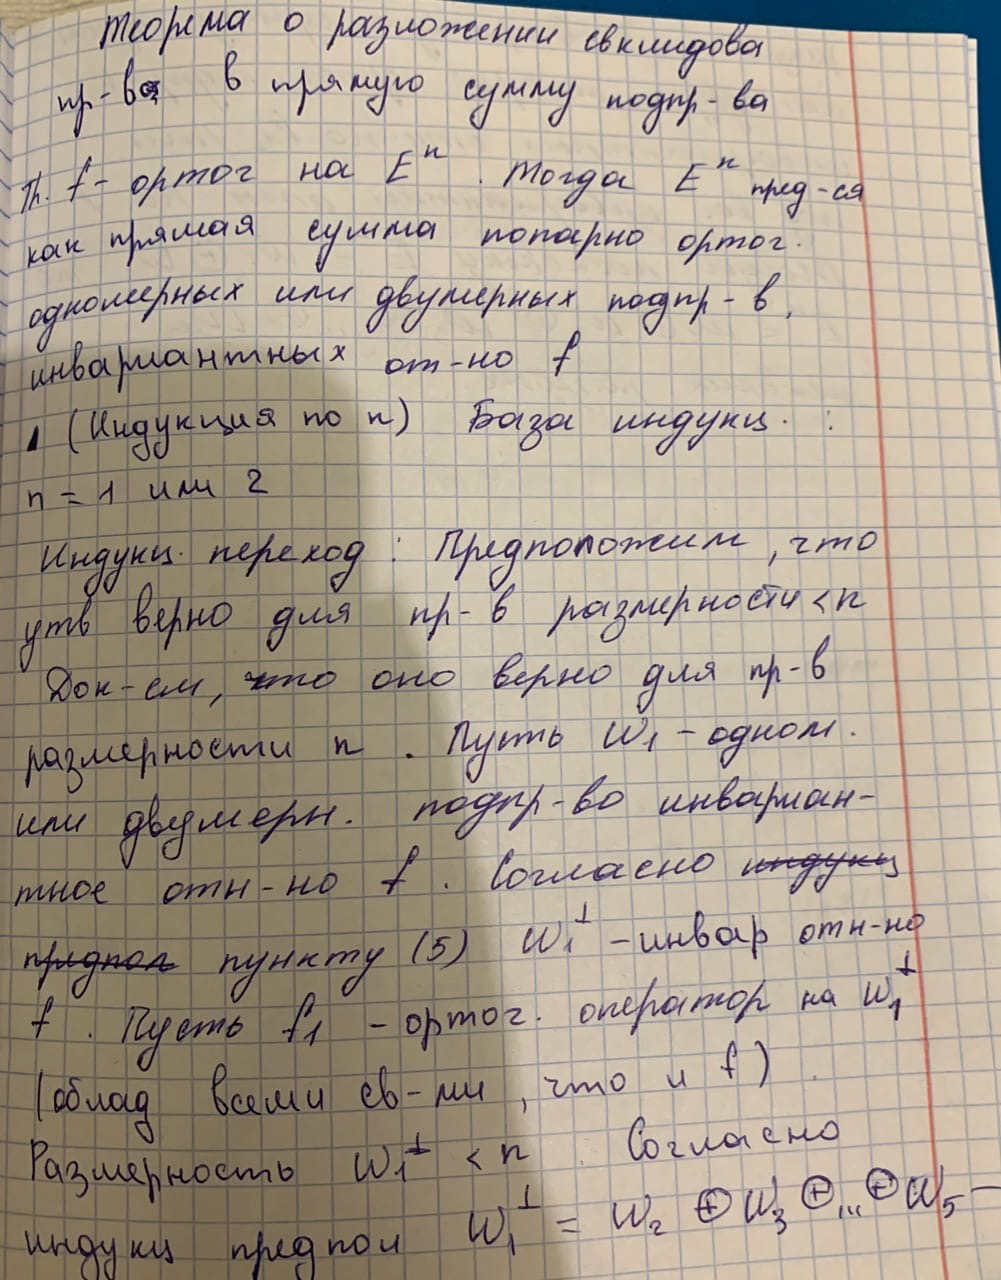 Теорема о разложении евклидова
пр-ва в прямую сумму подпр-ва
Th. f - ортог на Eⁿ. Тогда Eⁿ пред-ся
как прямая сумма попарно ортог.
одномерных или двумерных подпр-в,
инвариантных от-но f
(Индукция по n) База индукц. :
n = 1 или 2
Индукц. переход : Предположим, что
утв верно для пр-в размерности < n
Док-ем, что оно верно для пр-в
размерности n. Пусть W₁ - одном.
или двумерн. подпр-во инвариан-
тное отн-но f. Согласно индукц
предпол пункту (5) W₁^⊥ - инвар отн-но
f. Пусть f₁ - ортог. оператор на W₁^⊥
(облад всеми св-ми, что и f).
Размерность W₁^⊥ < n. Согласно
индукц предпол W₁^⊥ = W₂ ⊕ W₃ ⊕ ... ⊕ W₅ -